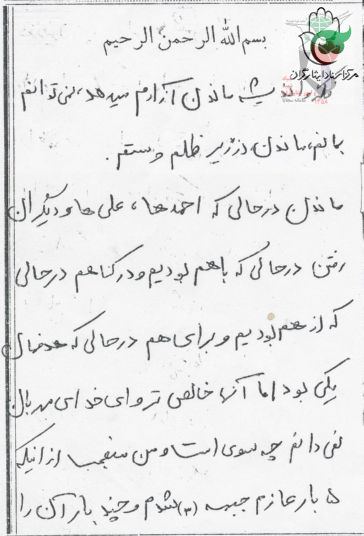 بسم الله الرحمن الرحیم
مرکز اسناد ایثارگران
اندیشه ماندن آزارم میدهد، نمی توانم
بمانم، ماندن در زیر ظلم و ستم.
ماندن در حالی که احمدها، علی ها و دیگران
رفتن در حالی که با هم بودیم و در کنار هم در حالی
که از هم بودیم و برای هم در حالی که هدفمان
یکی بود اما آنها خالص تر و ای خدای مهربان
نمی دانم چه سری است و من متعجب از اینکه
۵ بار عازم جبهه (۳) شدم و چند بار آن را